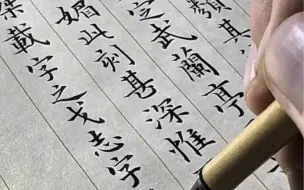 類其
定武蘭亭
媚此刻甚深惟
載字之戈志字